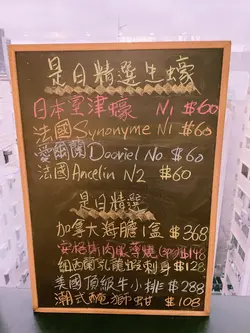 是日精選生蠔
日本室津蠔 N1 $60
法國Synonyme N1 $60
愛爾蘭Dooriel No $60
法國Ancelin N2 $60
是日精選
加拿大海膽1盒 $368
$148
紐西蘭乳龍蝦刺身 $128
美國頂級牛小排 $288
潮式醃獅蚶 $108